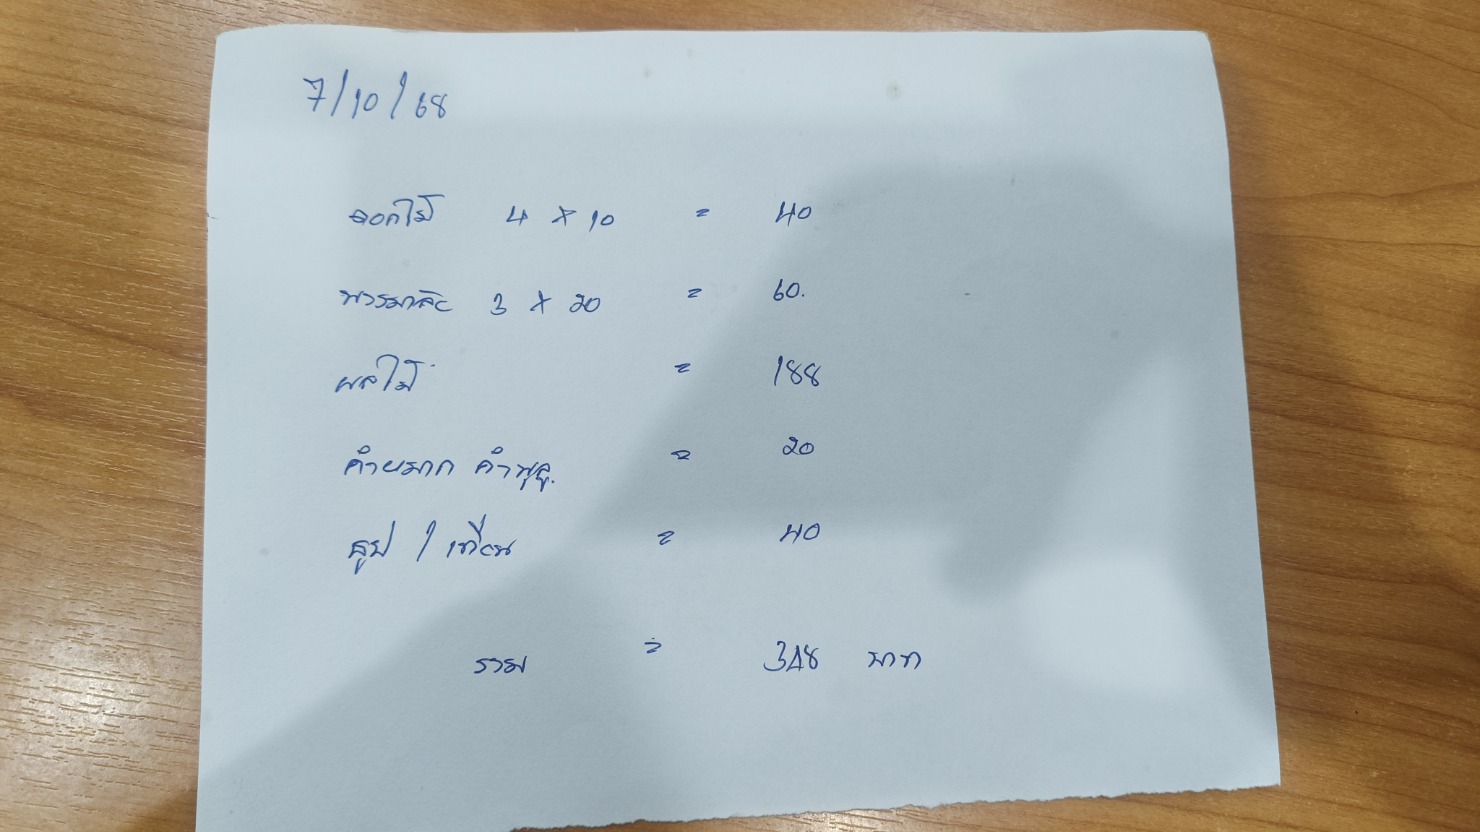 7/10/68
ดอกไม้ 4 x 10 = 40
พวงมาลัย 3 x 20 = 60.
ผลไม้ = 188
คำหมาก คำพลู. = 20
ธูป / เทียน = 40
รวม = 348 บาท